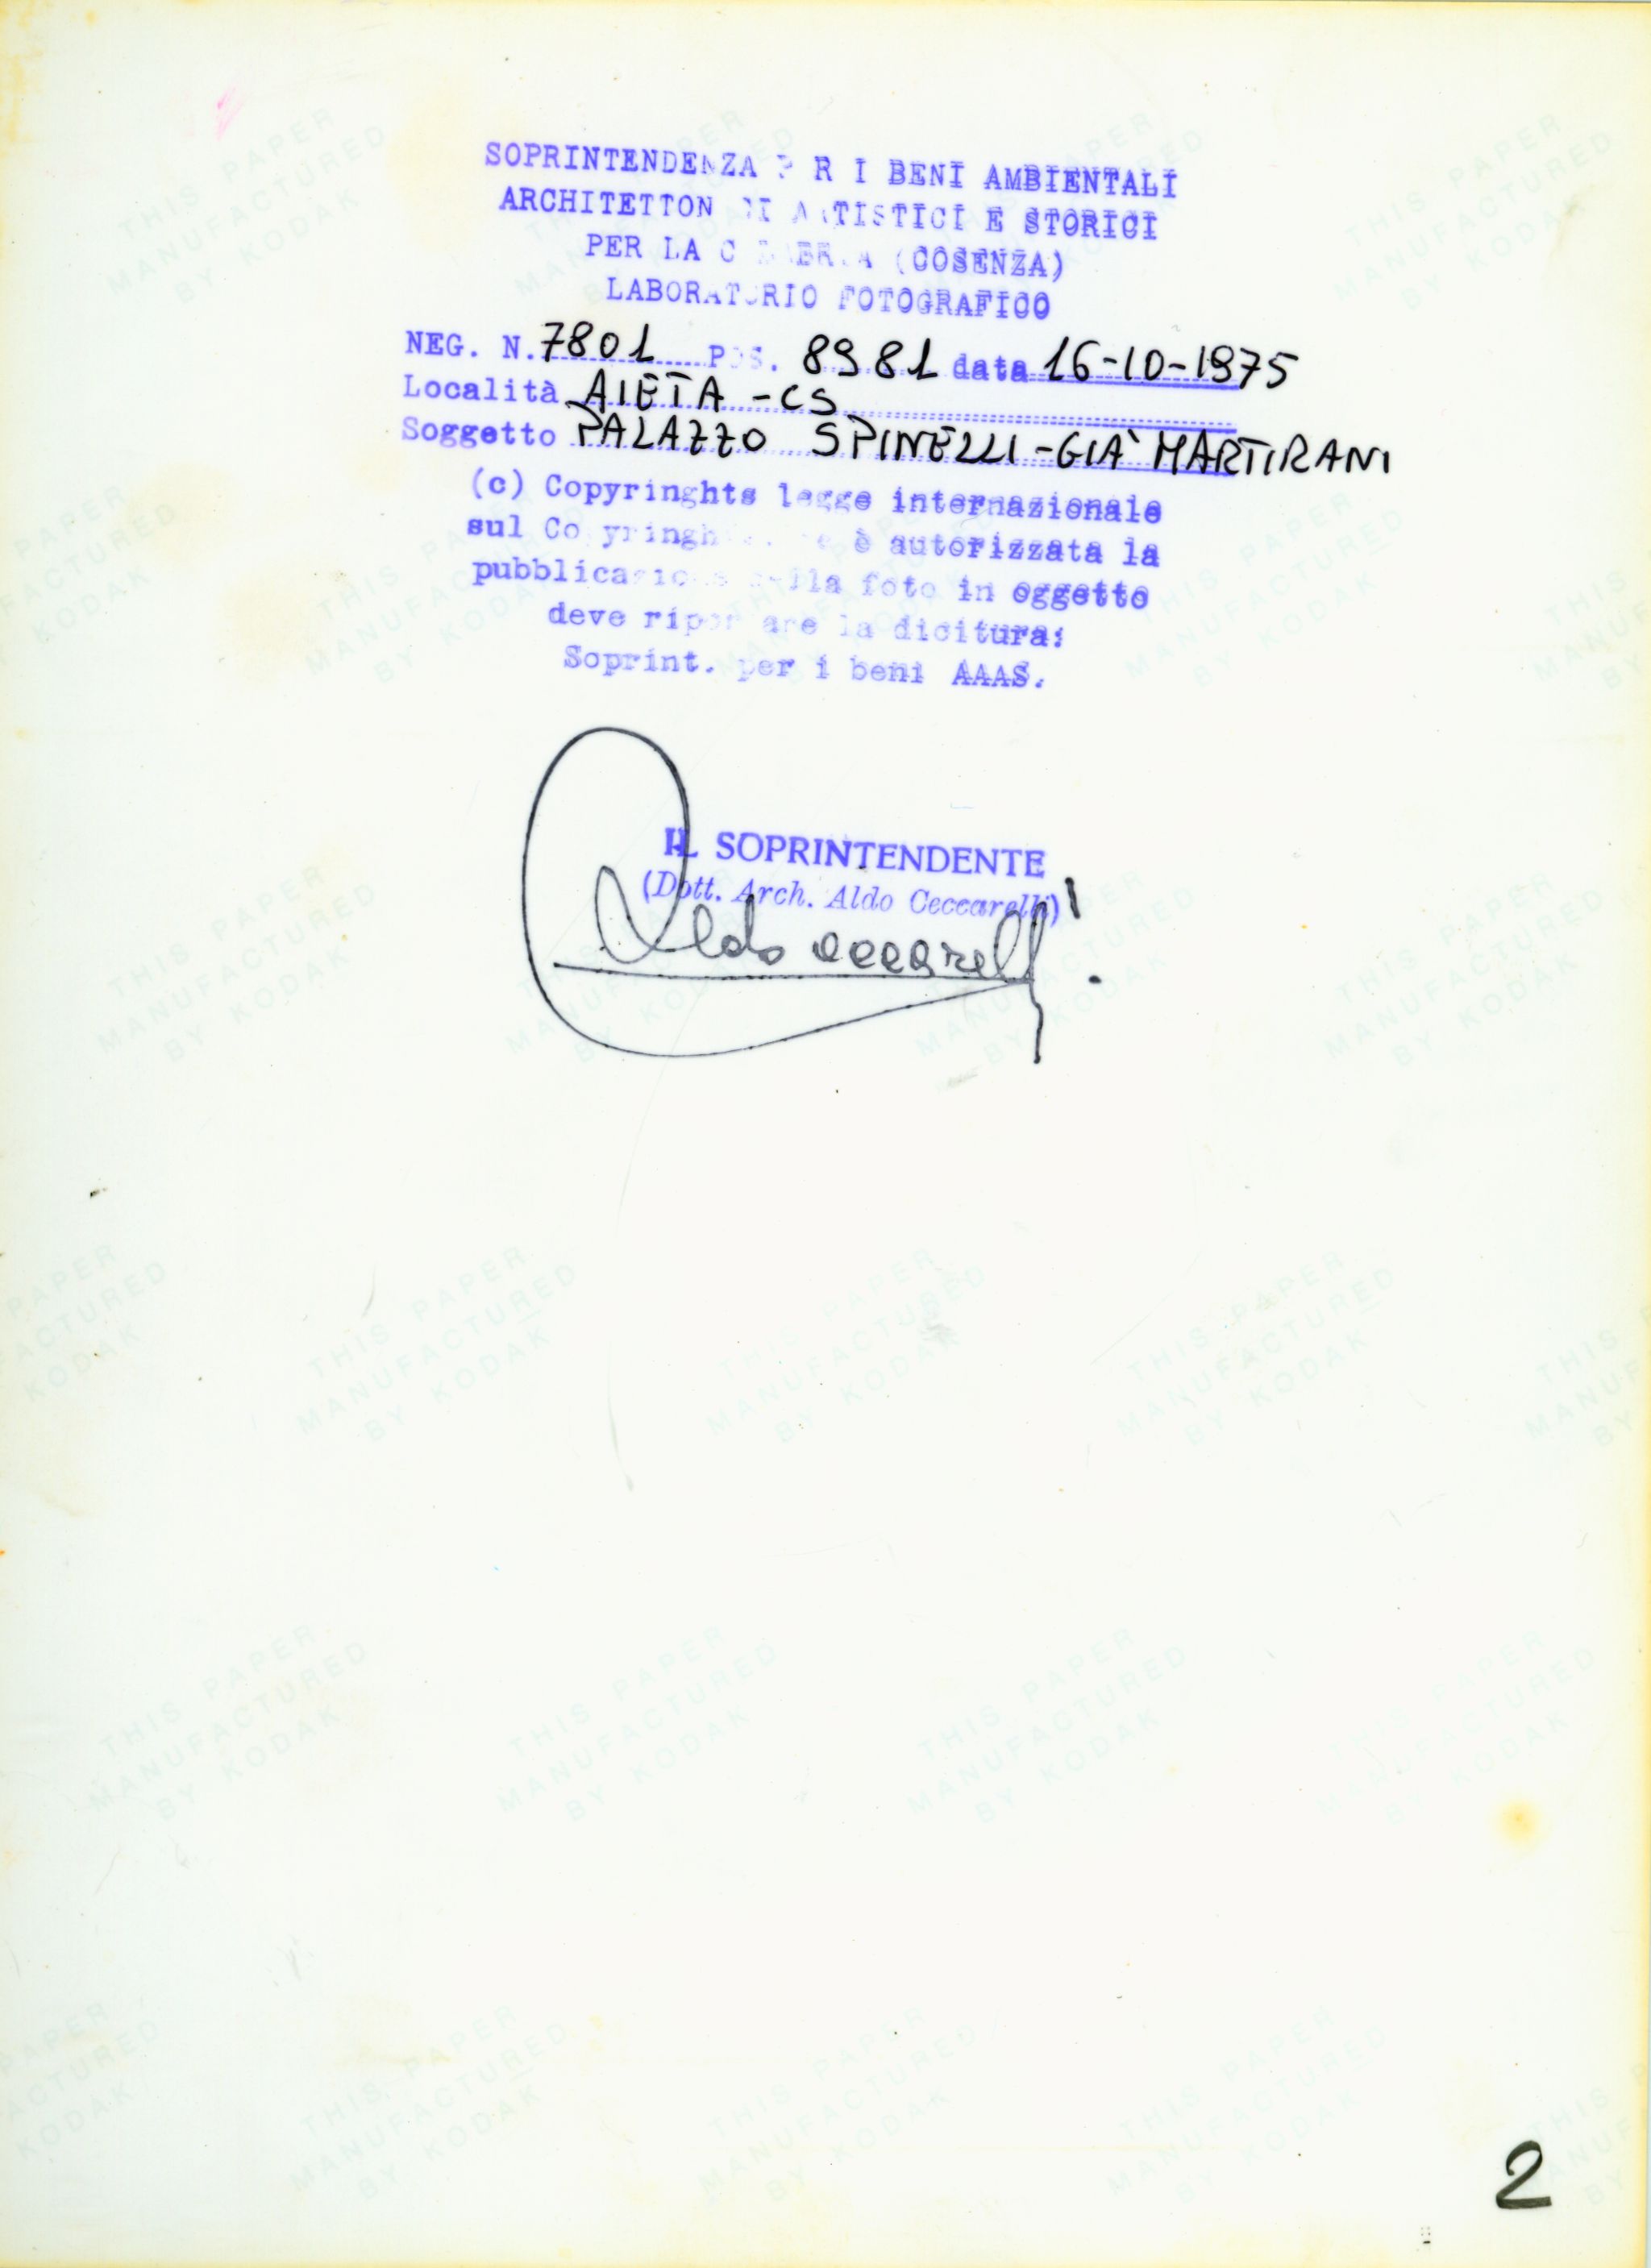 SOPRINTENDENZA P R I BENI AMBIENTALI
ARCHITETTON CI A TISTICI E STORICI
PER LA C LABR A (COSENZA)
LABORATORIO FOTOGRAFICO
NEG. N. 7801 POS. 8981 data 16-10-1975
Località AIETA - CS
Soggetto PALAZZO SPINELLI - GIÀ MARTIRANI
(c) Copyringhts legge internazionale
sul Co yringh è autorizzata la
pubblicazione della foto in oggetto
deve ripor are la dicitura:
Soprint. per i beni AAAS.
IL SOPRINTENDENTE
(Dott. Arch. Aldo Ceccarelli)
Aldo Ceccarelli
THIS PAPER
MANUFACTURED
BY KODAK
2